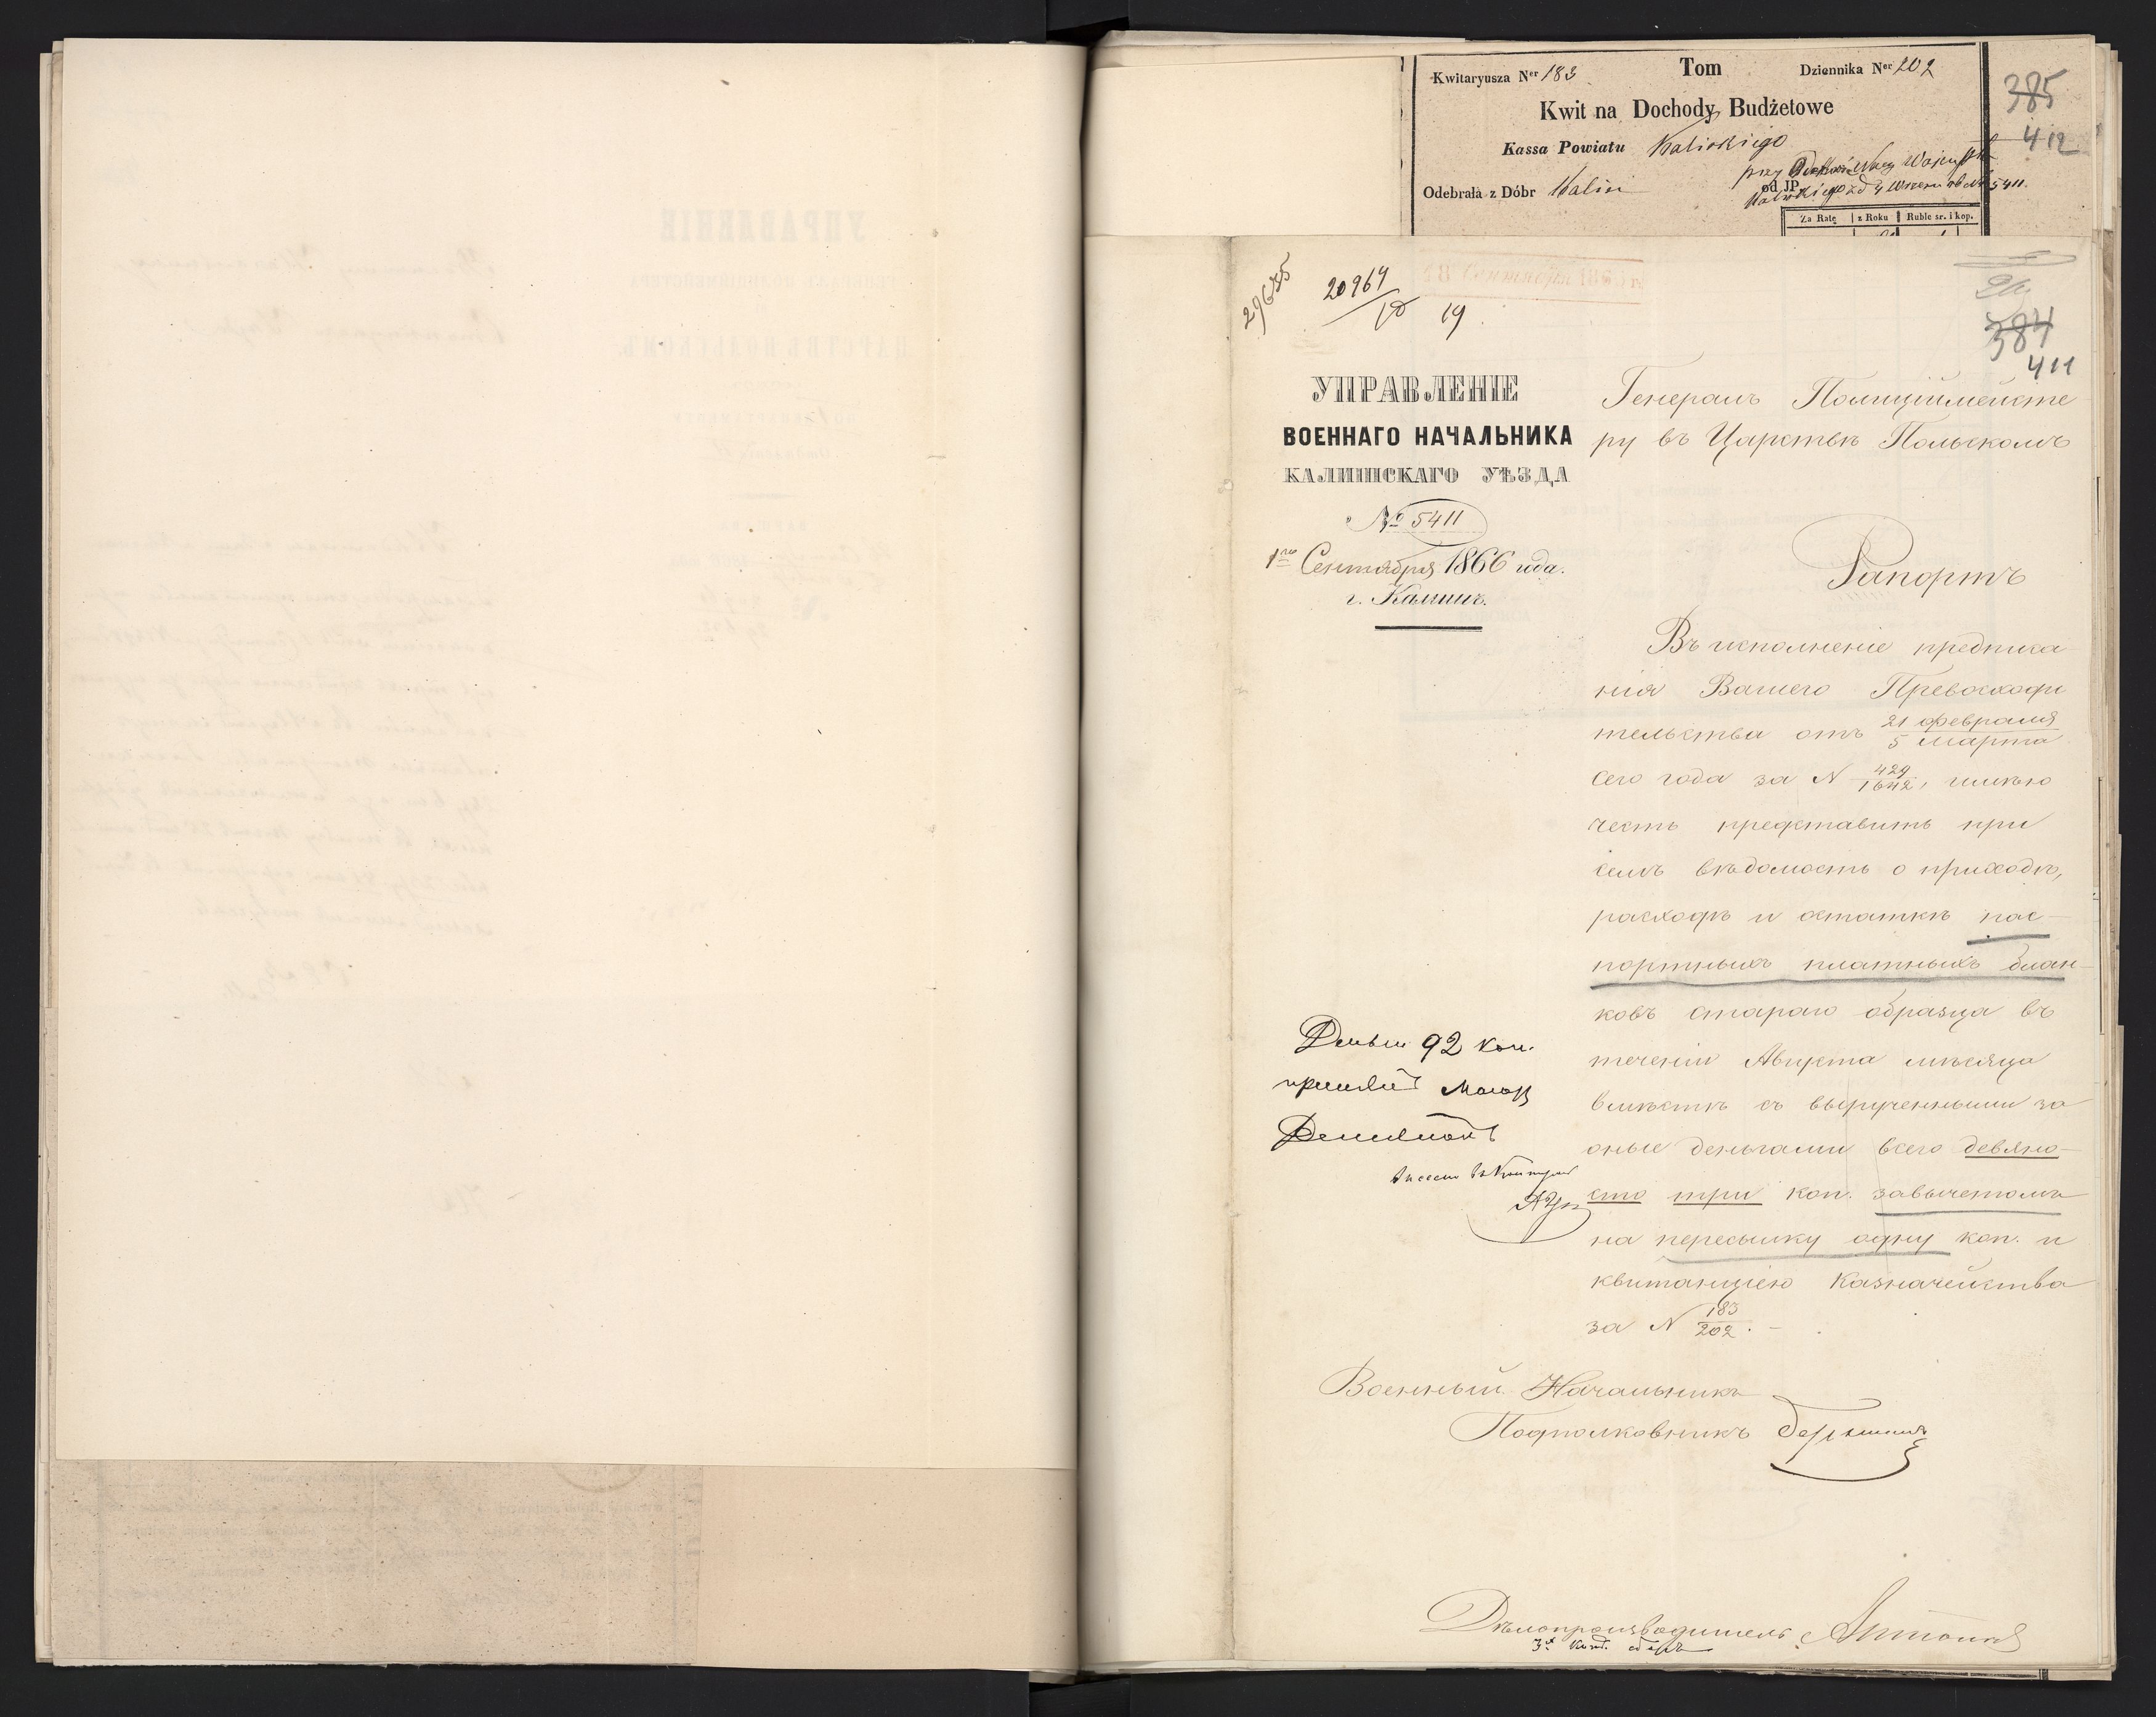 Kwitaryusza Ner 183 Tom Dziennika Ner 202
Kwit na Dochody Budżetowe
Kassa Powiatu Kaliskiego
Odebrała z Dóbr Kalisz
od JP.
5411.
Za Ratę z Roku Ruble sr. i kop.
385
412
29635
20964
19
384
411
УПРАВЛЕНІЕ
ВОЕННАГО НАЧАЛЬНИКА
КАЛИШСКАГО УѢЗДА
№ 5411
1го Сентября 1866 года.
г. Калишъ.
Генералъ Полиціймейсте
ру въ Царствѣ Польскомъ
Рапортъ
Въ исполненіе предписа
нія Вашего Превосходи
тельства отъ 21 февраля / 5 марта
сего года за N 429/1642, имѣю
честь представить при
семъ вѣдомость о приходѣ,
расходѣ и остаткѣ пас-
портныхъ платныхъ блан-
ковъ стараго образца въ
теченіи Августа мѣсяца
вмѣстѣ съ вырученными за
оные деньгами всего девяно-
сто три коп. за вычетомъ
на пересылку одну коп. и
квитанціею Казначейства
за N 183/202. -
Деньги 92 коп.
принялъ Маіоръ
Военный Начальникъ
Подполковникъ
Дѣлопроизводитель